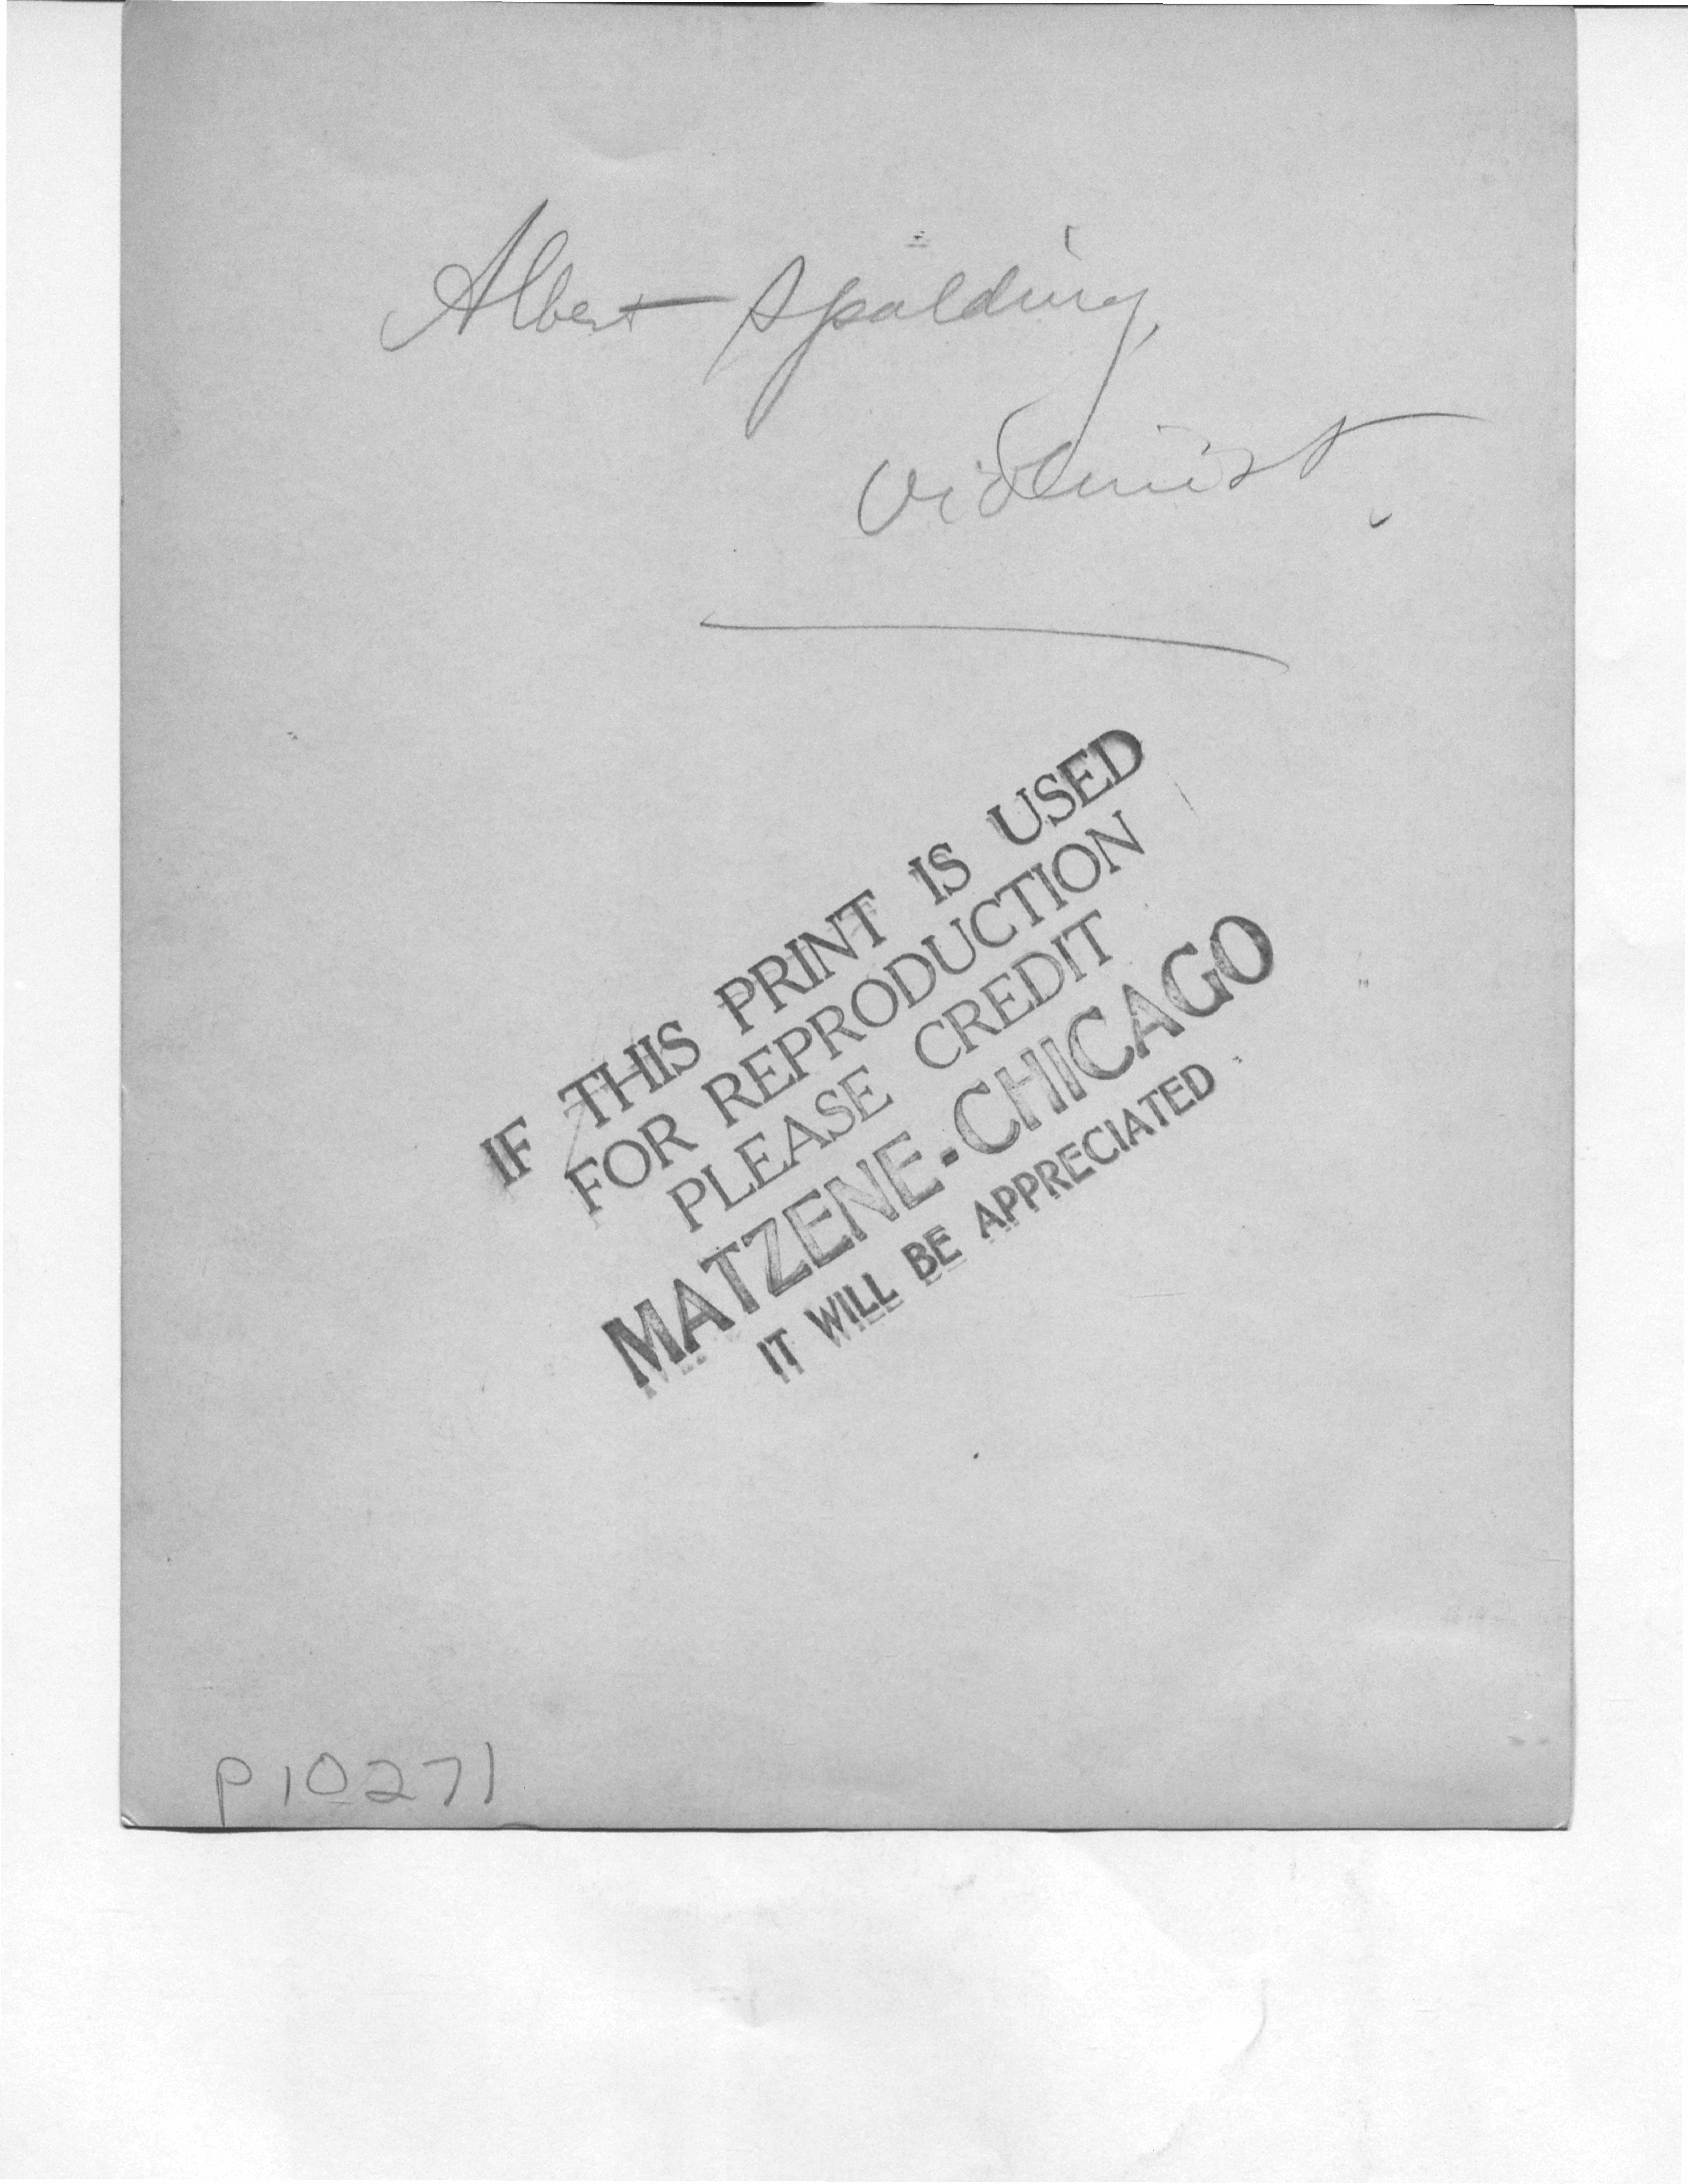 Albert Spalding,
Violinist.
IF THIS PRINT IS USED
FOR REPRODUCTION
PLEASE CREDIT
MATZENE-CHICAGO
IT WILL BE APPRECIATED
P10271